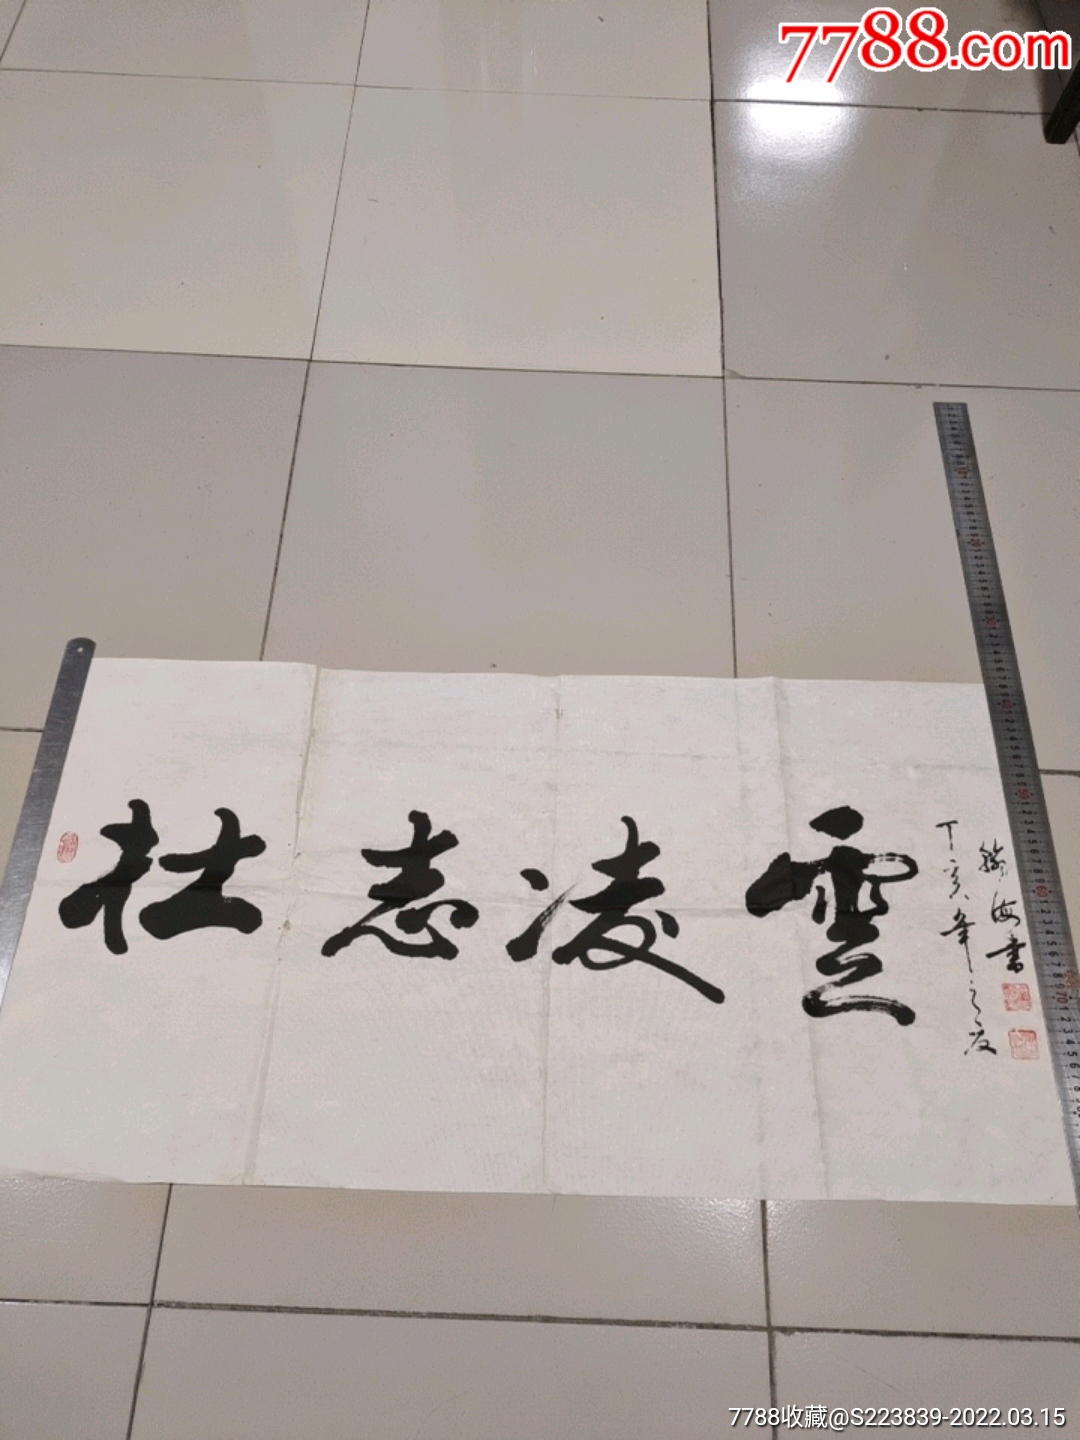 7788.com
壮志凌雲
丁亥年之夏
海書
7788收藏@S223839-2022.03.15